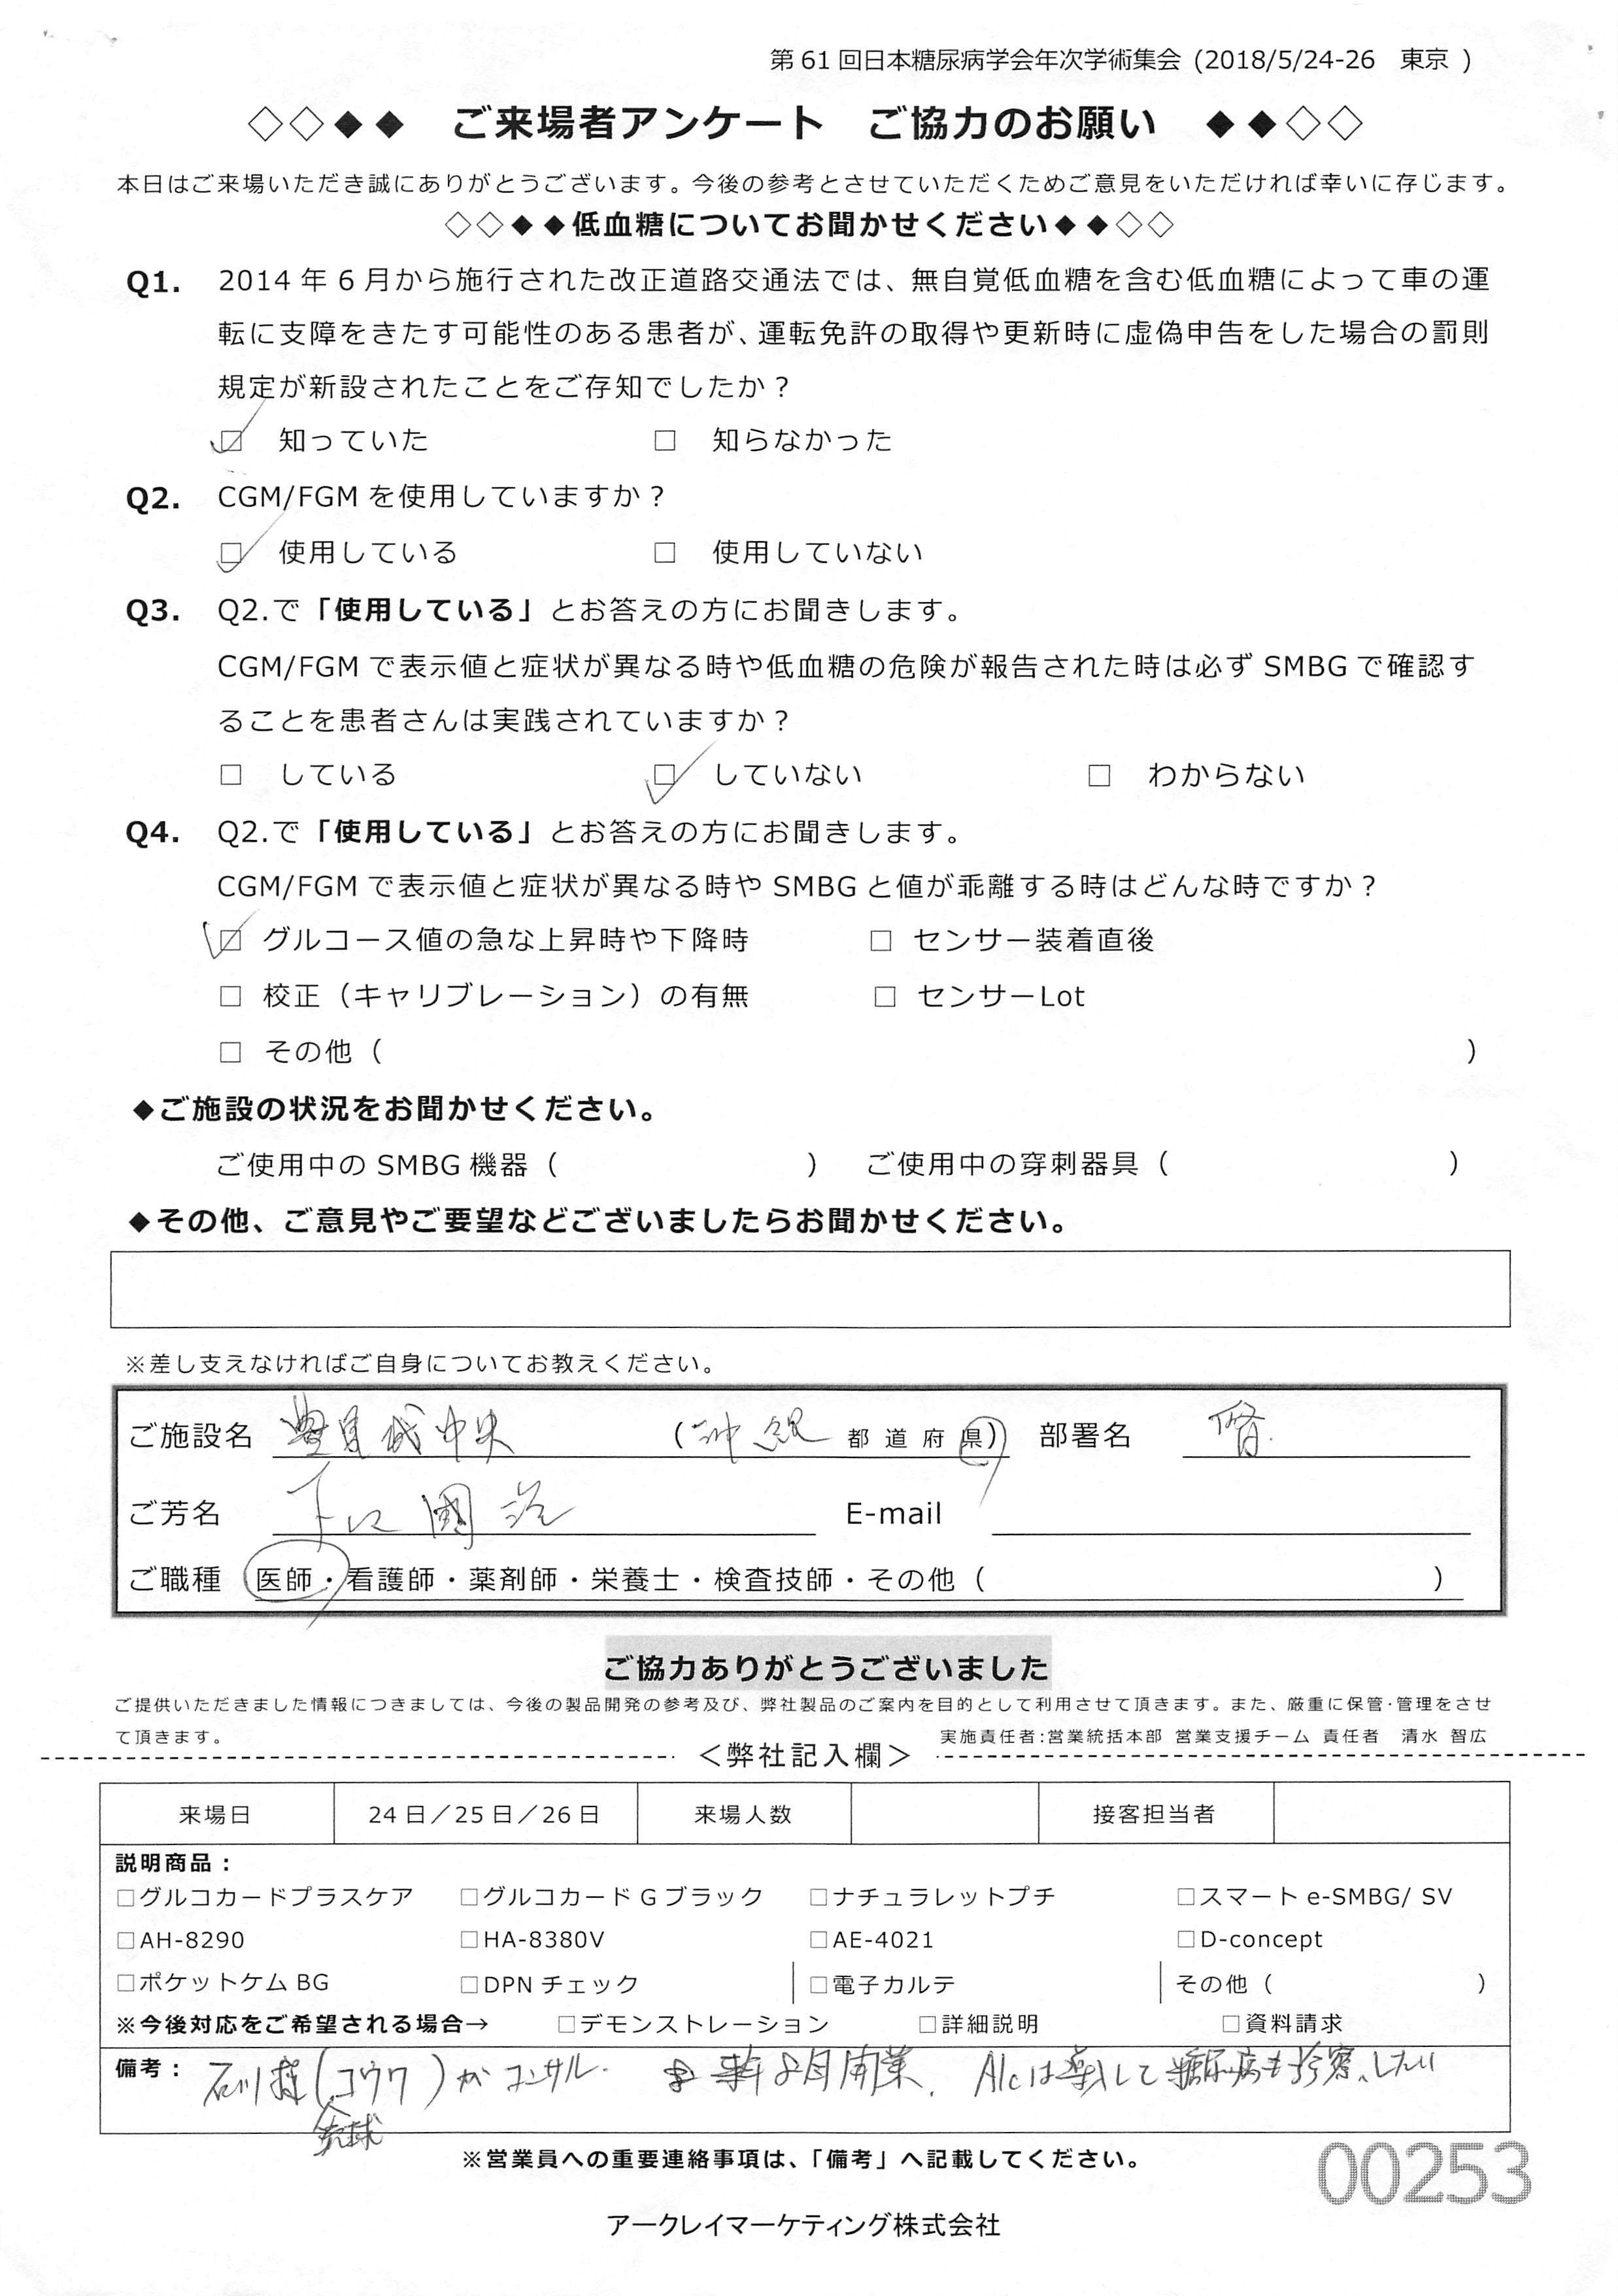 第61回日本糖尿病学会年次学術集会 (2018/5/24-26　東京 )
◇◇◆◆　ご来場者アンケート　ご協力のお願い　◆◆◇◇
本日はご来場いただき誠にありがとうございます。今後の参考とさせていただくためご意見をいただければ幸いに存じます。
◇◇◆◆低血糖についてお聞かせください◆◆◇◇
Q1. 2014年6月から施行された改正道路交通法では、無自覚低血糖を含む低血糖によって車の運
転に支障をきたす可能性のある患者が、運転免許の取得や更新時に虚偽申告をした場合の罰則
規定が新設されたことをご存知でしたか？
☑ 知っていた　□ 知らなかった
Q2. CGM/FGM を使用していますか？
☑ 使用している　□ 使用していない
Q3. Q2.で「使用している」とお答えの方にお聞きします。
CGM/FGM で表示値と症状が異なる時や低血糖の危険が報告された時は必ず SMBG で確認す
ることを患者さんは実践されていますか？
□ している　☑ していない　□ わからない
Q4. Q2.で「使用している」とお答えの方にお聞きします。
CGM/FGM で表示値と症状が異なる時や SMBG と値が乖離する時はどんな時ですか？
☑ グルコース値の急な上昇時や下降時　□ センサー装着直後
□ 校正（キャリブレーション）の有無　□ センサーLot
□ その他（　）
◆ご施設の状況をお聞かせください。
ご使用中の SMBG 機器（　）　ご使用中の穿刺器具（　）
◆その他、ご意見やご要望などございましたらお聞かせください。
※差し支えなければご自身についてお教えください。
ご施設名 豊見城中央 (沖縄 都 道 府 県) 部署名
ご芳名 下 國 治 E-mail
ご職種 医師・看護師・薬剤師・栄養士・検査技師・その他（　）
ご協力ありがとうございました
ご提供いただきました情報につきましては、今後の製品開発の参考及び、弊社製品のご案内を目的として利用させて頂きます。また、厳重に保管・管理をさせ
て頂きます。　実施責任者:営業統括本部 営業支援チーム 責任者　清水 智広
＜弊社記入欄＞
来場日　24日／25日／26日　来場人数　接客担当者
説明商品：
□グルコカードプラスケア　□グルコカード G ブラック　□ナチュラレットプチ　□スマート e-SMBG/ SV
□AH-8290　□HA-8380V　□AE-4021　□D-concept
□ポケットケム BG　□DPN チェック　□電子カルテ　その他（　）
※今後対応をご希望される場合→　□デモンストレーション　□詳細説明　□資料請求
備考： 石川様(コウワ)がコンサル. 月開業. A1cは して糖尿病も診察したい
琉球
※営業員への重要連絡事項は、「備考」へ記載してください。
00253
アークレイマーケティング株式会社